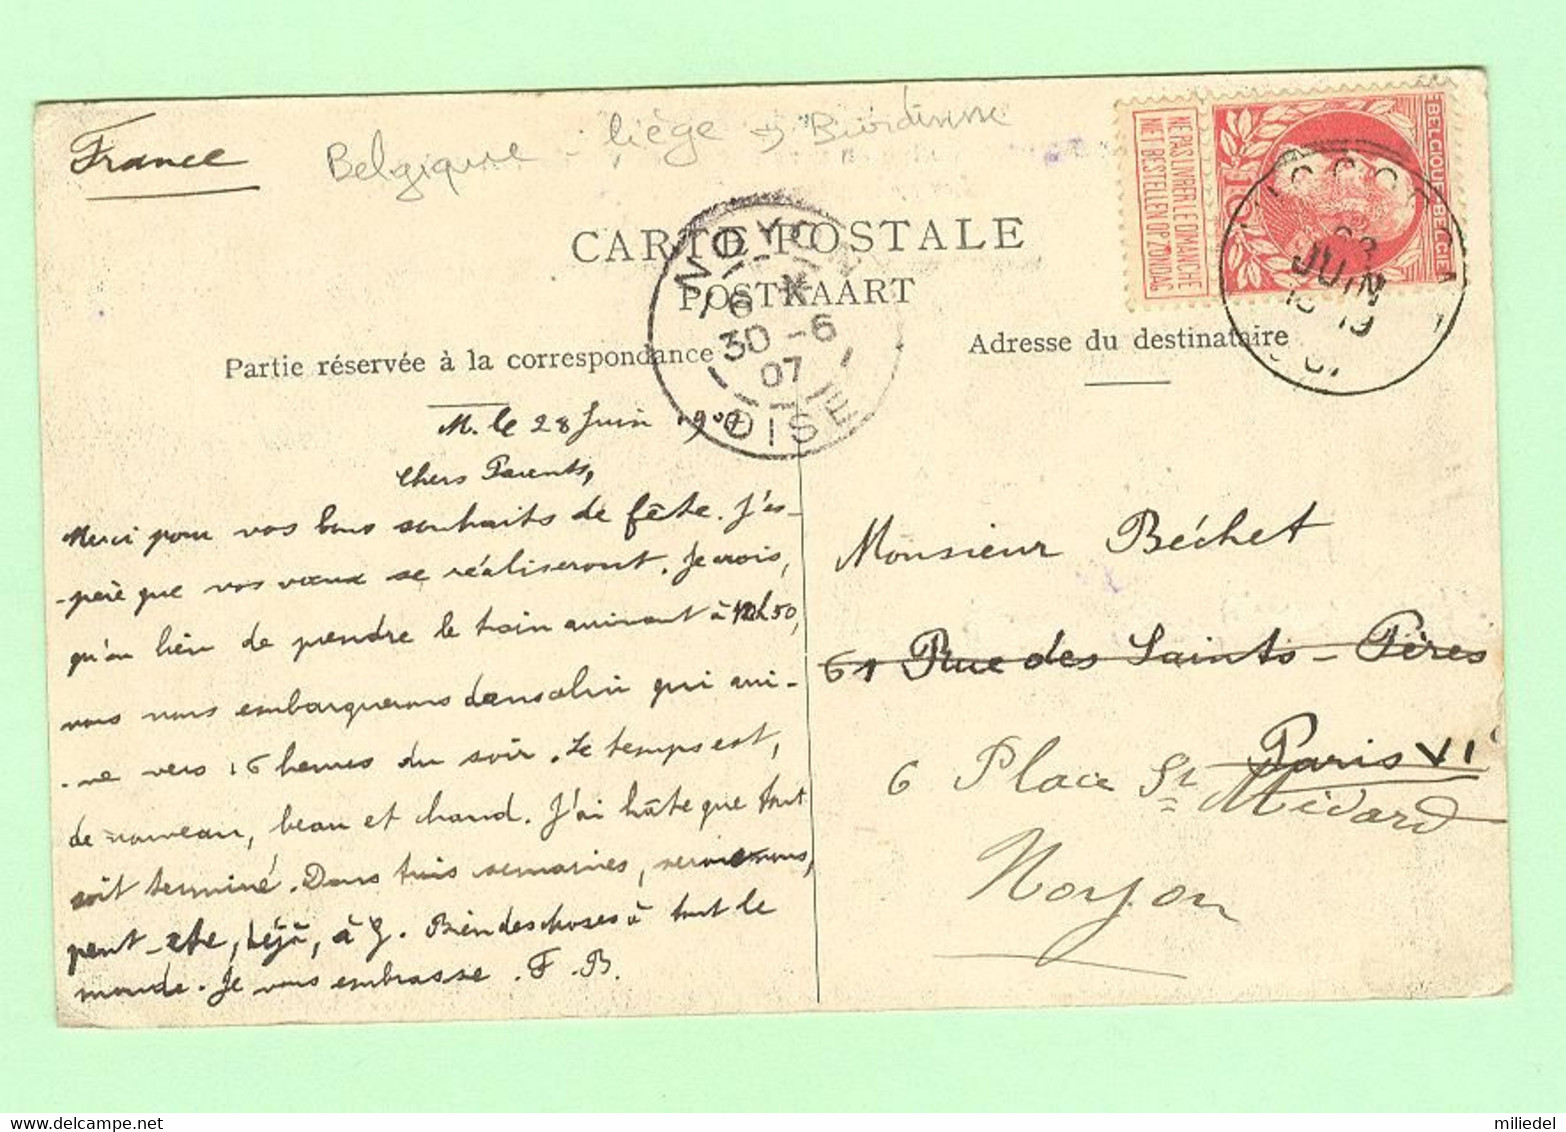 France
Belgique - Liège
CARTE POSTALE
POSTKAART
Partie réservée à la correspondance
Adresse du destinataire
NOYON
6
30 -6
07
OISE
NE PAS LIVRER LE DIMANCHE
NIET BESTELLEN OP ZONDAG
BELGIQUE BELGIE
10
JUIN
M. le 28 Juin 1907
Chers Parents,
Merci pour vos bons souhaits de fête. J'es-
-père que vos vœux se réaliseront. Je crois,
qu'au lieu de prendre le train arrivant à 12h50,
nous nous embarquerons dans celui qui arri-
-ve vers 16 heures du soir. Le temps est,
de nouveau, beau et chaud. J'ai hâte que tout
soit terminé. Dans trois semaines, serons nous,
peut-être, déjà, à J. Bien des choses à tout le
monde. Je vous embrasse. F. B.
Monsieur Béchet
61 Rue des Saints-Pères
Paris VI
6 Place St Médard
Noyon
miliedel